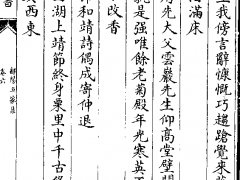 上我傍言辭慷慨巧趨蹌覺來
花滿床
先大父雲巖先生仰高堂壁間
就是强唯餘老菊殿年光寒英不
改香
和靖詩偶成寄仲退
湖上靖節終身栗里中千古
西東